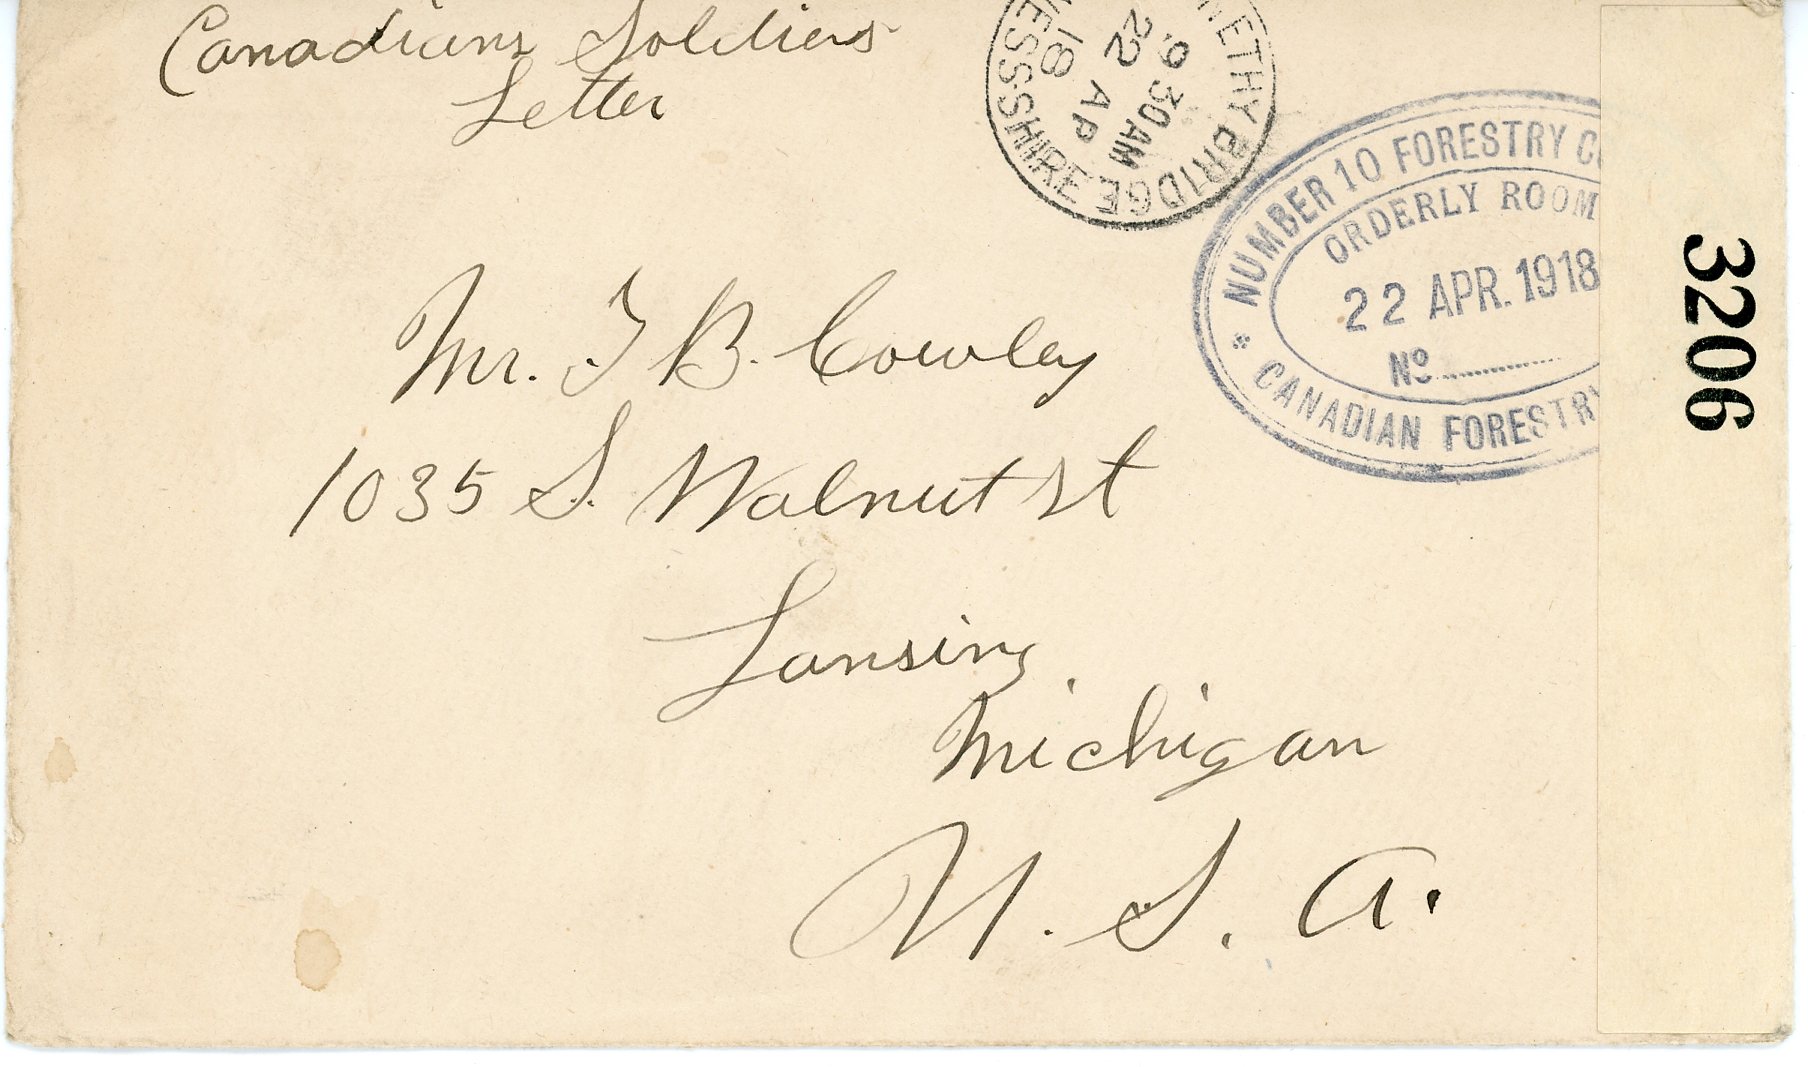 Canadians Soldiers
Letter
NETHY BRIDGE
9.30AM
22 AP
18
NESS-SHIRE
NUMBER 10 FORESTRY
ORDERLY ROOM
22 APR. 1918
No
* CANADIAN FORESTRY
3206
Mr. T B. Cowley
1035 S. Walnut st
Lansing
Michigan
U. S. A.